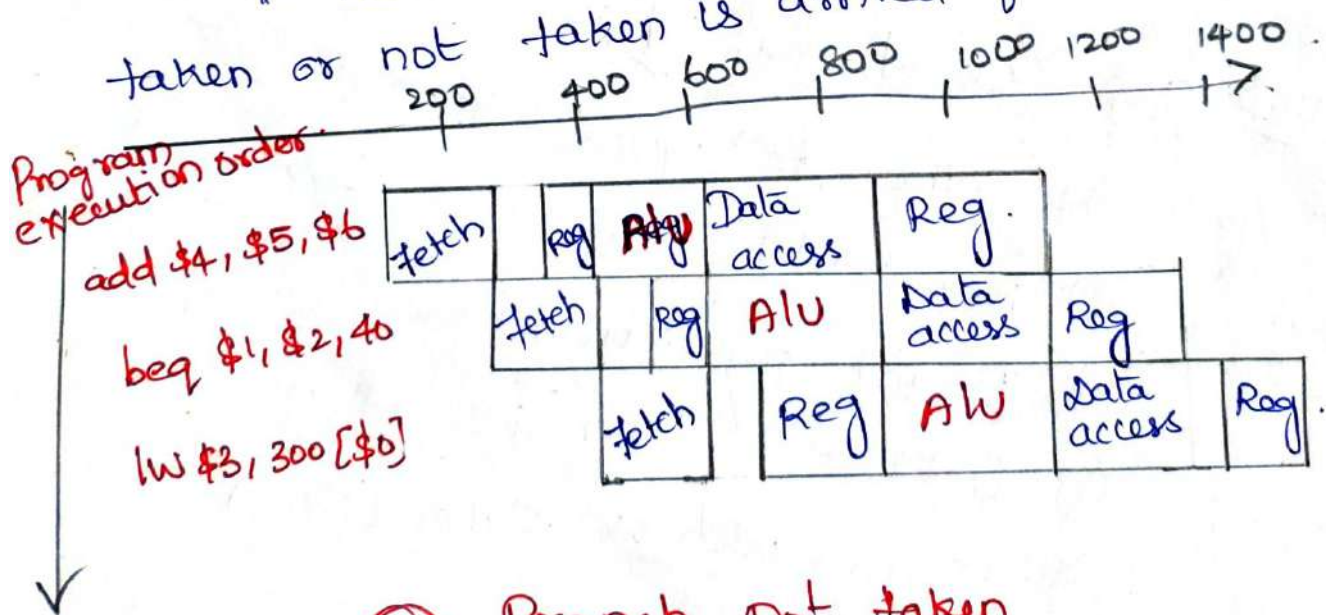 taken or not taken is
200 400 600 800 1000 1200 1400.
Program
execution order.
add $4, $5, $6
fetch Reg Alu Data access Reg.
beq $1, $2, 40
fetch Reg Alu Data access Reg
lw $3, 300 [$0]
fetch Reg Alu Data access Reg.
Branch not taken